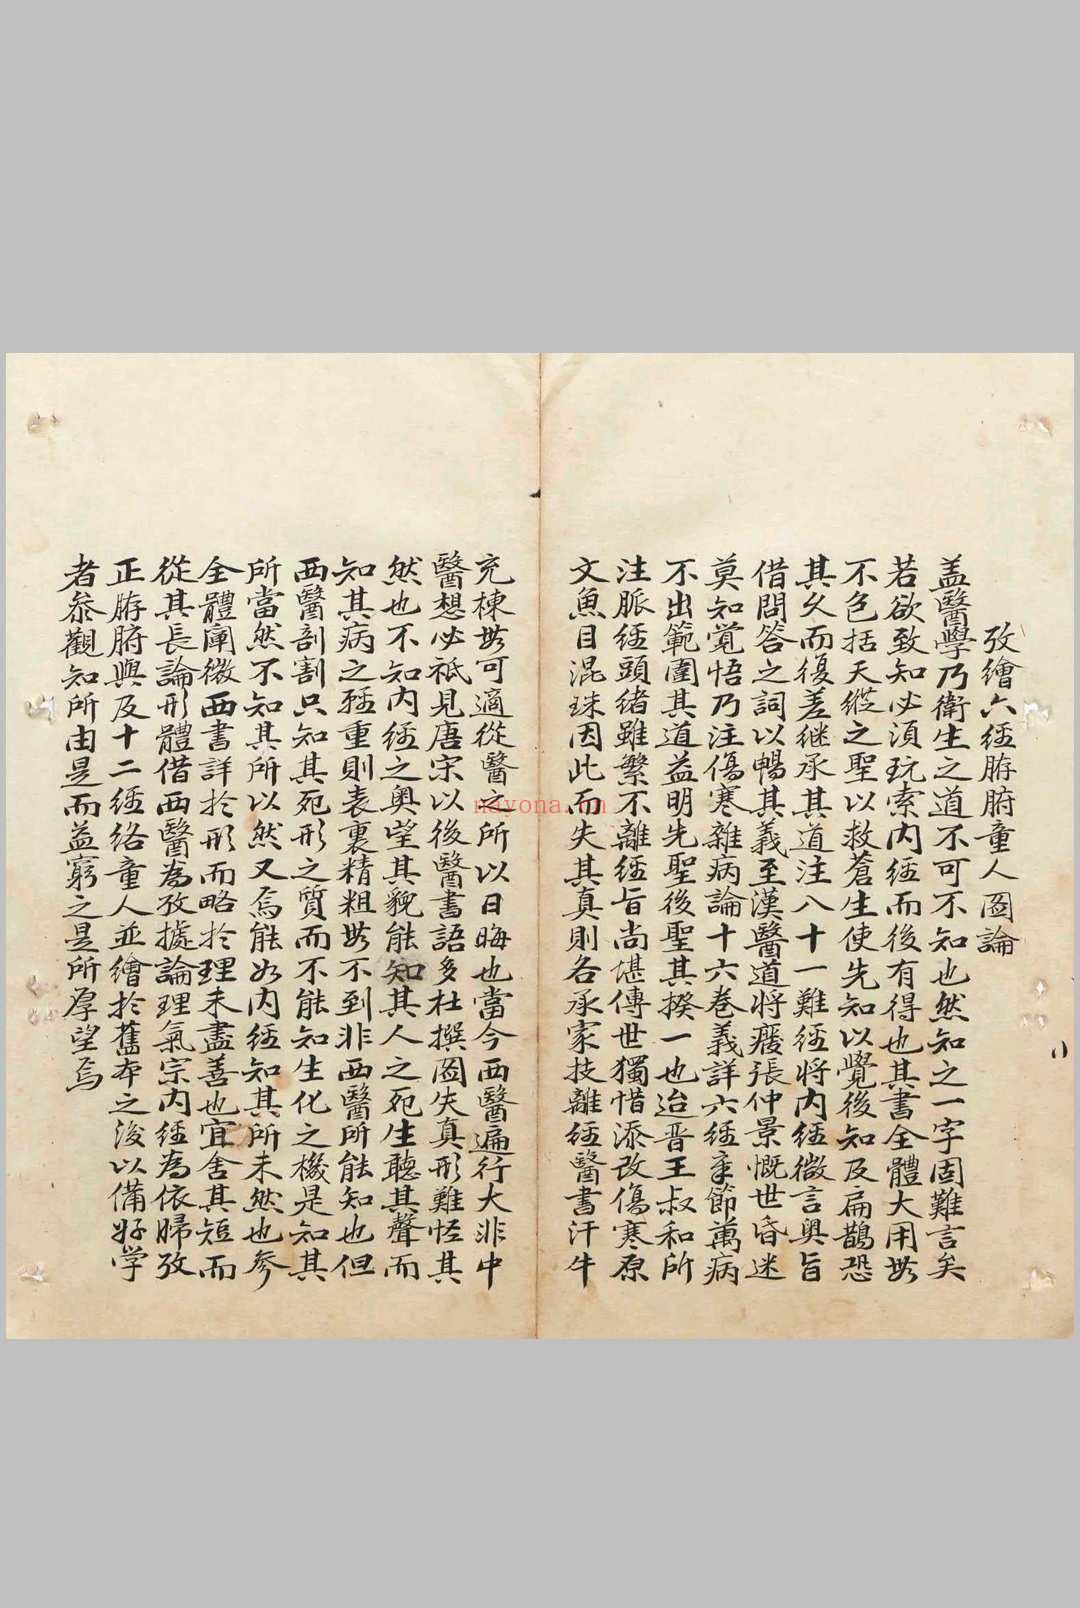 攷繪六經腑腑童人圖論
盖醫學乃衛生之道不可不知也然知之一字固難言矣
若欲致知必須玩索內經而後有得也其書全體大用無
不包括天縱之聖以救蒼生使先知以覺後知及扁鵲恐
其久而復差継承其道注八十一難經將內經微言奧旨
借問答之詞以暢其義至漢醫道將廢張仲景慨世昏迷
莫知覺悟乃注傷寒雜病論十六卷義詳六經章節萬病
不出範圍其道益明先聖後聖其揆一也迨晋王叔和所
注脈經頭緒雖繁不離經旨尚堪傳世獨惜添改傷寒原
文魚目混珠因此而失其真則各承家技離經醫書汗牛
充棟無可適從醫之所以日晦也當今西醫遍行大非中
醫想必祇見唐宋以後醫書語多杜撰圖失真形難怪其
然也不知內經之奧望其貌能知其人之死生聽其聲而
知其病之輕重則表裏精粗無不到非西醫所能知也但
西醫剖割只知其死形之質而不能知生化之機是知其
所當然不知其所以然又焉能如內經知其所未然也參
全體闡微西書詳於形而略於理未盡善也宜舍其短而
從其長論形體借西醫為攷據論理氣宗內經為依歸攷
正腑腑與及十二經絡童人並繪於舊本之後以備好学
者叅觀知所由是而益窮之是所厚望焉
nayona.cn